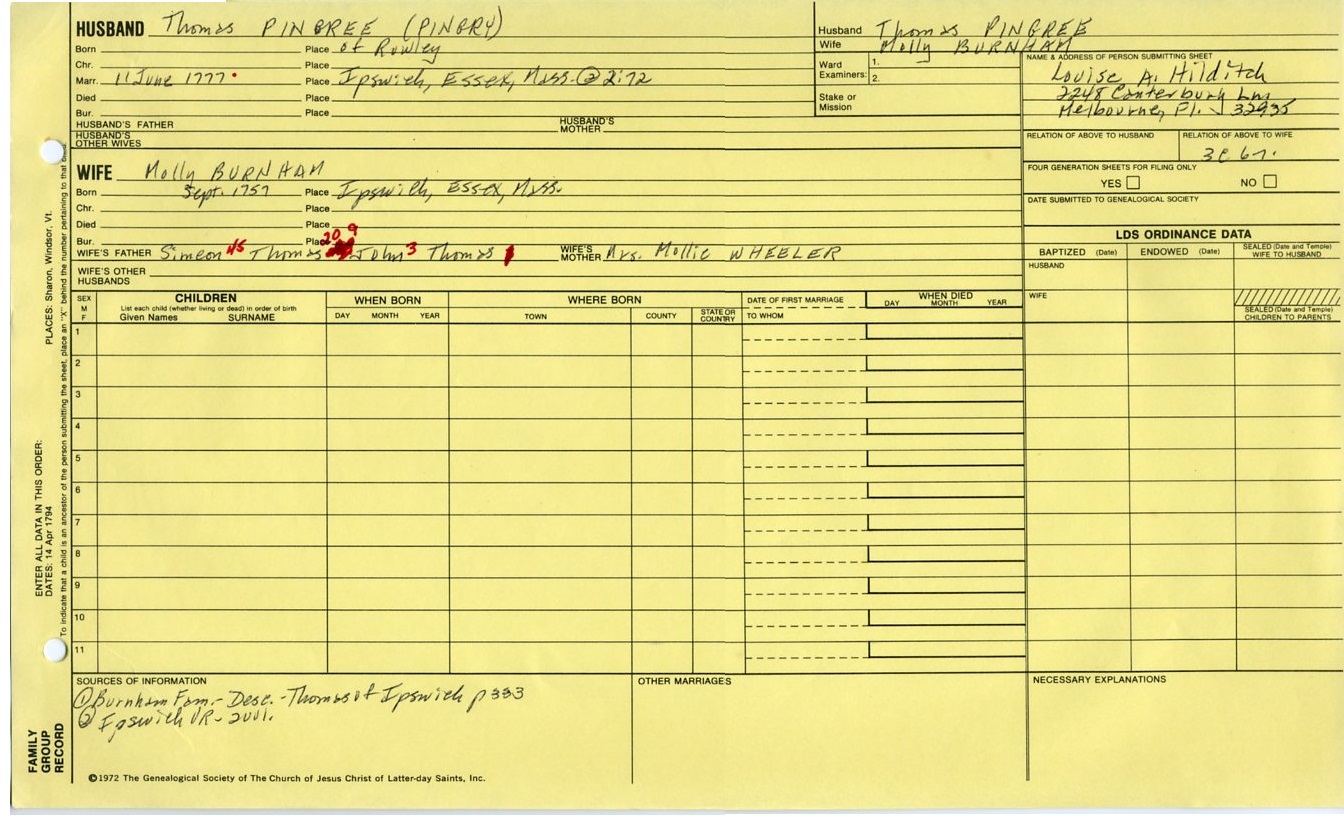 HUSBAND Thomas PINGREE (PINGRY)
Born Place of Rowley
Chr. Place
Marr. 11 June 1777 Place Ipswich, Essex, Mass. @ 2:72
Died Place
Bur. Place
HUSBAND'S FATHER HUSBAND'S MOTHER
HUSBAND'S OTHER WIVES
Husband Thomas PINGREE
Wife Molly BURNHAM
Ward Examiners: 1.
2.
Stake or Mission
NAME & ADDRESS OF PERSON SUBMITTING SHEET
Louise A. Hilditch
2248 Canterbury Ln.
Melbourne, Fl. 32935
RELATION OF ABOVE TO HUSBAND RELATION OF ABOVE TO WIFE
3C 6r.
FOUR GENERATION SHEETS FOR FILING ONLY
YES NO
DATE SUBMITTED TO GENEALOGICAL SOCIETY
WIFE Molly BURNHAM
Born Sept. 1757 Place Ipswich, Essex, Mass.
Chr. Place
Died Place
Bur. Place
20 9
WIFE'S FATHER Simeon 45 Thomas John 3 Thomas 1 WIFE'S MOTHER Mrs. Mollie WHEELER
WIFE'S OTHER HUSBANDS
LDS ORDINANCE DATA
BAPTIZED (Date) ENDOWED (Date) SEALED (Date and Temple) WIFE TO HUSBAND
HUSBAND
WIFE
SEALED (Date and Temple) CHILDREN TO PARENTS
SEX M F
CHILDREN
List each child (whether living or dead) in order of birth
Given Names SURNAME
WHEN BORN
DAY MONTH YEAR
WHERE BORN
TOWN COUNTY STATE OR COUNTRY
DATE OF FIRST MARRIAGE
TO WHOM
WHEN DIED
DAY MONTH YEAR
1
2
3
4
5
6
7
8
9
10
11
SOURCES OF INFORMATION
① Burnham Fam.- Desc.-Thomas of Ipswich p 333
② Ipswich VR- 2vol.
OTHER MARRIAGES
NECESSARY EXPLANATIONS
©1972 The Genealogical Society of The Church of Jesus Christ of Latter-day Saints, Inc.
FAMILY GROUP RECORD
ENTER ALL DATA IN THIS ORDER:
DATES: 14 Apr 1794 PLACES: Sharon, Windsor, Vt.
To indicate that a child is an ancestor of the person submitting the sheet, place an "X" behind the number pertaining to that child.